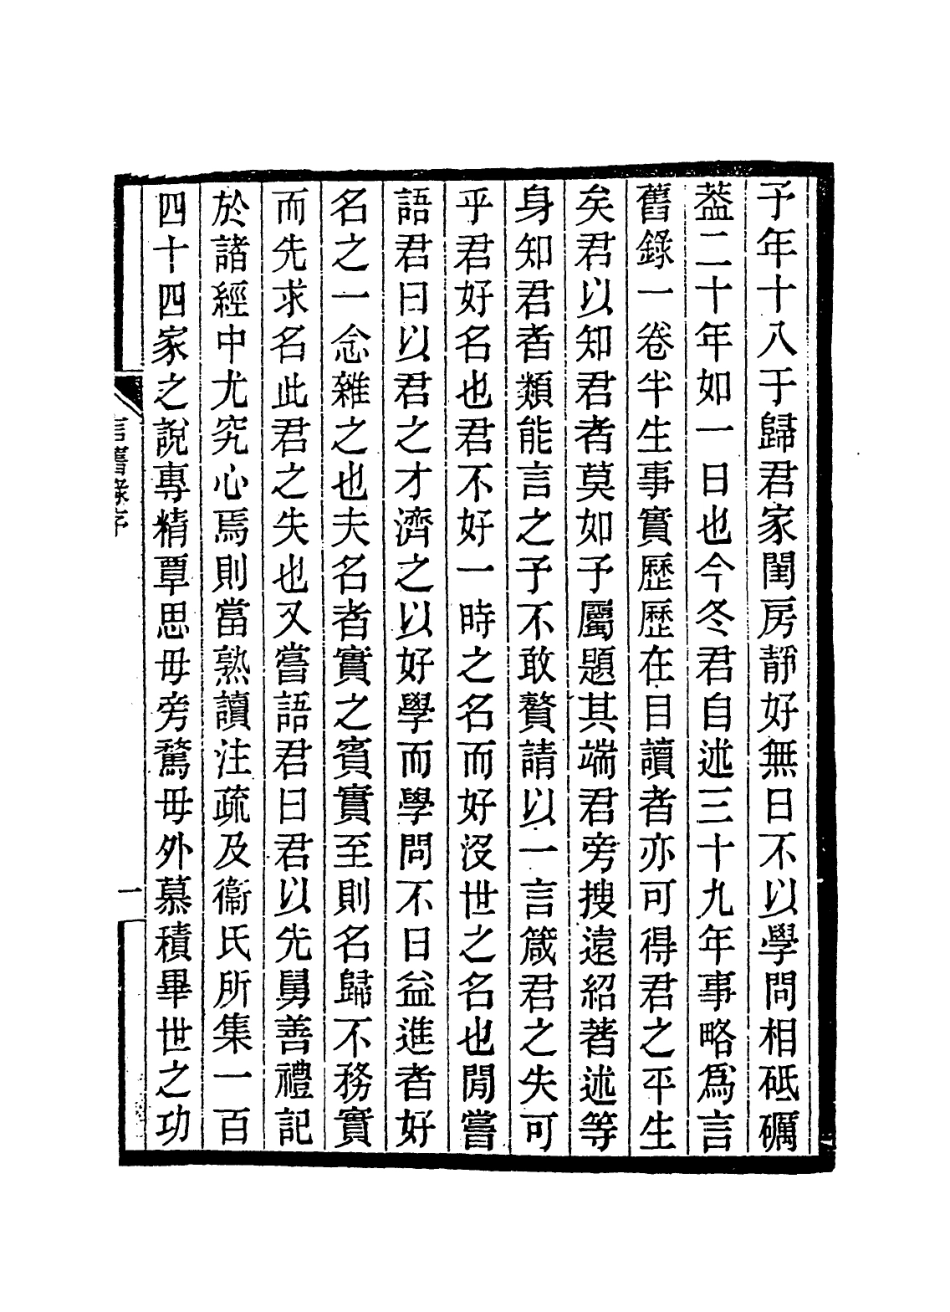 予年十八于歸君家閨房靜好無日不以學問相砥礪
葢二十年如一日也今冬君自述三十九年事略爲言
舊錄一卷半生事實歷歷在目讀者亦可得君之平生
矣君以知君者莫如予屬題其端君旁搜遠紹著述等
身知君者類能言之予不敢贅請以一言箴君之失可
乎君好名也君不好一時之名而好沒世之名也閒嘗
語君曰以君之才濟之以好學而學問不日益進者好
名之一念雜之也夫名者實之賓實至則名歸不務實
而先求名此君之失也又嘗語君曰君以先舅善禮記
於諸經中尤究心焉則當熟讀注疏及衞氏所集一百
四十四家之說專精覃思毋旁騖毋外慕積畢世之功
言舊錄序
一